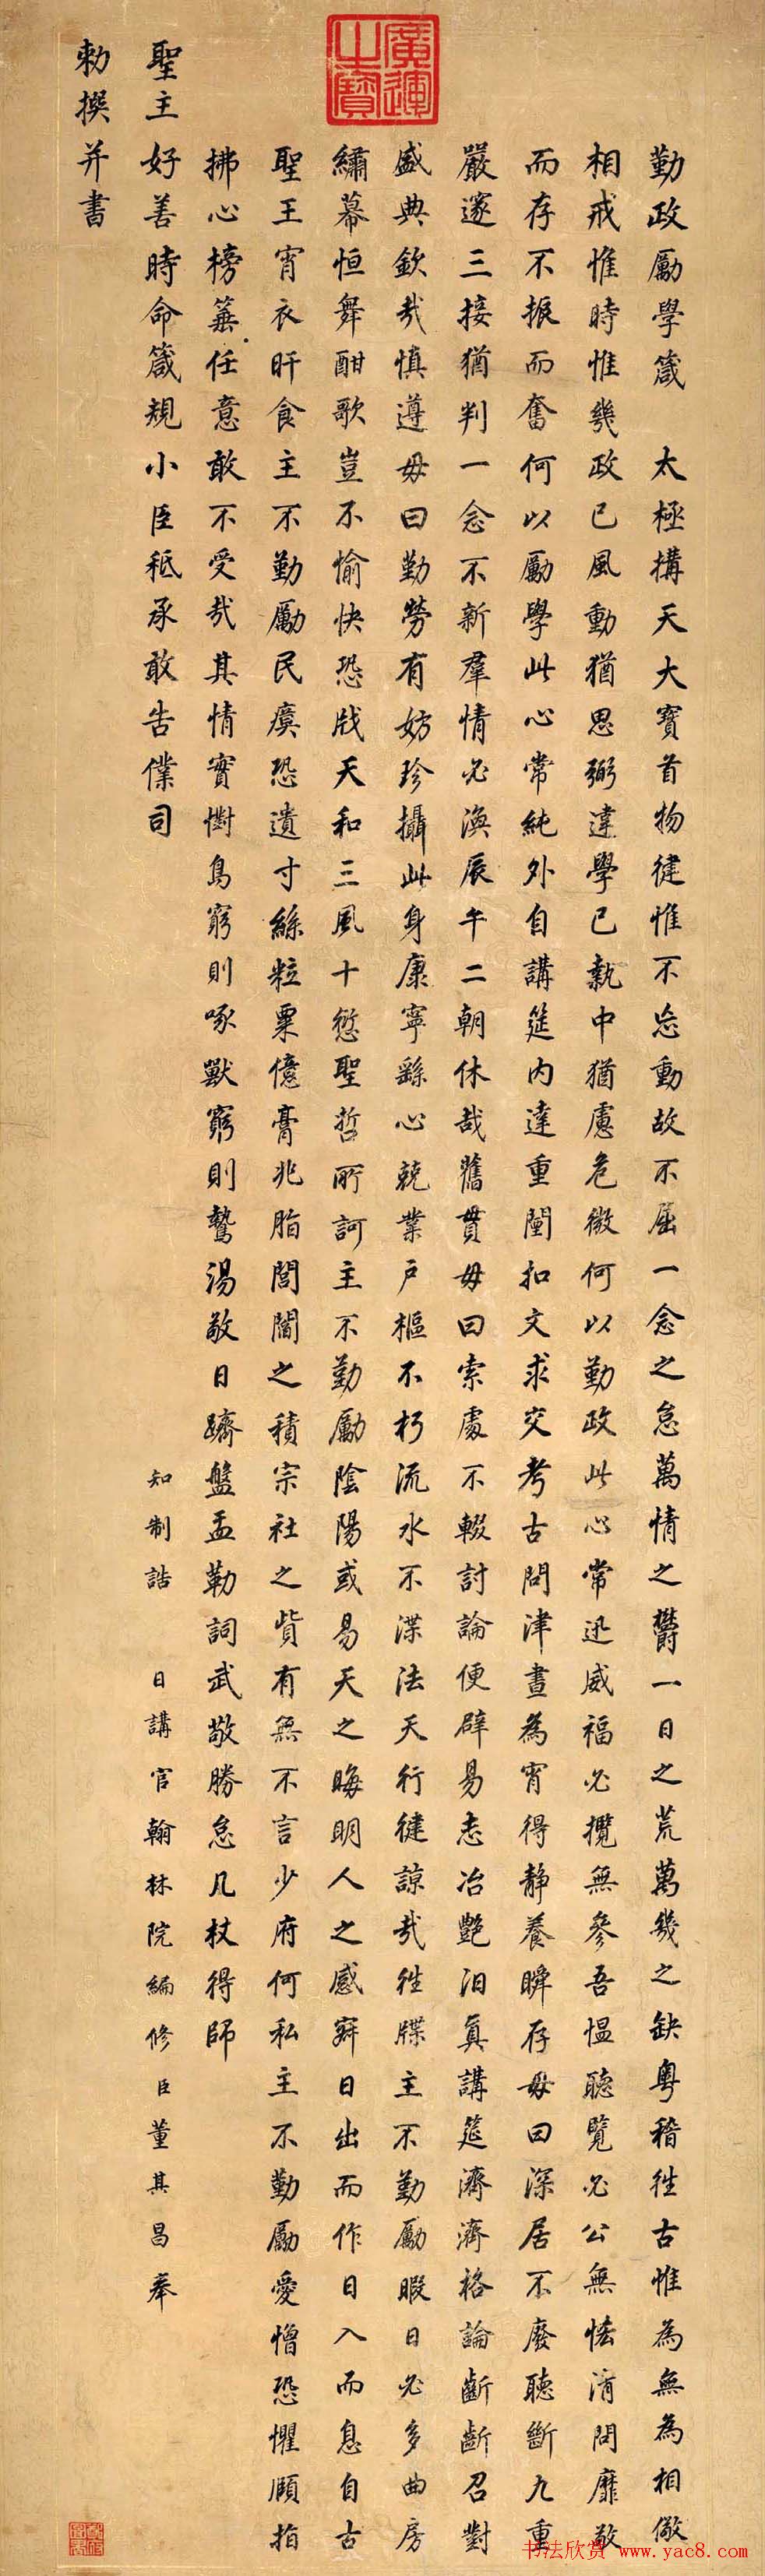 廣運之寶
勤政勵學箴 太極搆天大寶首物健惟不息動故不屈一念之怠萬情之欝一日之荒萬幾之缺粵稽往古惟為無為相儆
相戒惟時惟幾政已風動猶思弼違學已執中猶慮危微何以勤政此心常迅威福必攬無參吾愠聽覽必公無恡清問靡敬
而存不振而奮何以勵學此心常純外自講筵內達重闈扣文求交考古問津晝為宵得靜養瞬存毋曰深居不廢聽斷九重
嚴邃三接猶判一念不新羣情必渙辰午二朝休哉舊貫毋曰索處不輟討論便辟易志冶艷汨真講筵濟濟格論齗齗召對
盛典欽哉慎遵毋曰勤勞有妨珍攝此身康寧繇心兢業戶樞不朽流水不渫法天行健諒哉往牒主不勤勵暇日必多曲房
繡幕恒舞酣歌豈不愉快恐戕天和三風十愆聖哲所訶主不勤勵陰陽或易天之晦明人之感寐日出而作日入而息自古
聖王宵衣旰食主不勤勵民瘼恐遺寸絲粒粟億膏兆脂閭閻之積宗社之貲有無不言少府何私主不勤勵愛憎恐懼頤指
拂心榜箠任意敢不受哉其情實懟鳥窮則啄獸窮則鷙湯敬日躋盤盂勒詞武敬勝怠几杖得師
聖主好善時命箴規小臣秪承敢告僕司 知制誥 日講官翰林院編修臣董其昌奉
勅撰并書
书法欣赏 www.yac8.com